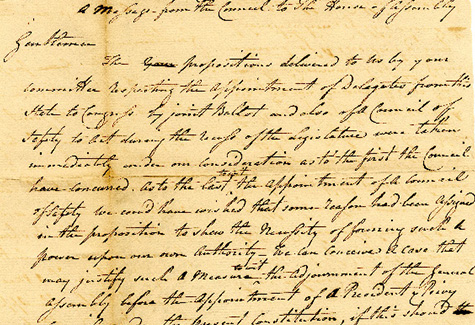 A Message from the Council to the House of Assembly
Gentlemen
The propositions delivered to us by your
committee respecting the Appointment of Delegates from this
State to Congress by joint Ballot and also of A Council of
Safety to Act during the recess of the Legislature were taken
immediately under our Consideration as to the first the Council
have concurred. As to the last, the Appointment of A Council
of Safety we could have wished that some reason had been assigned
in the proposition to shew the Necessity of forming such a
power upon our own Authority. We can conceive A case that
may justify such A Measure to wit the Adjournment of the General
Assembly before the Appointment of A President, Privy
the present Constitution, if this should